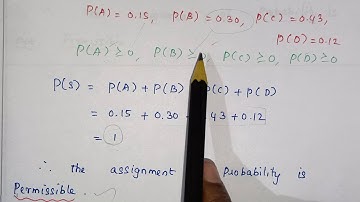 P(A) = 0.15, P(B) = 0.30, P(C) = 0.43,
P(D) = 0.12
P(A) ≥ 0, P(B) ≥ 0, P(C) ≥ 0, P(D) ≥ 0
P(S) = P(A) + P(B) P(C) + P(D)
= 0.15 + 0.30 .43 + 0.12
= 1
∴ the assignment probability is
Permissible.